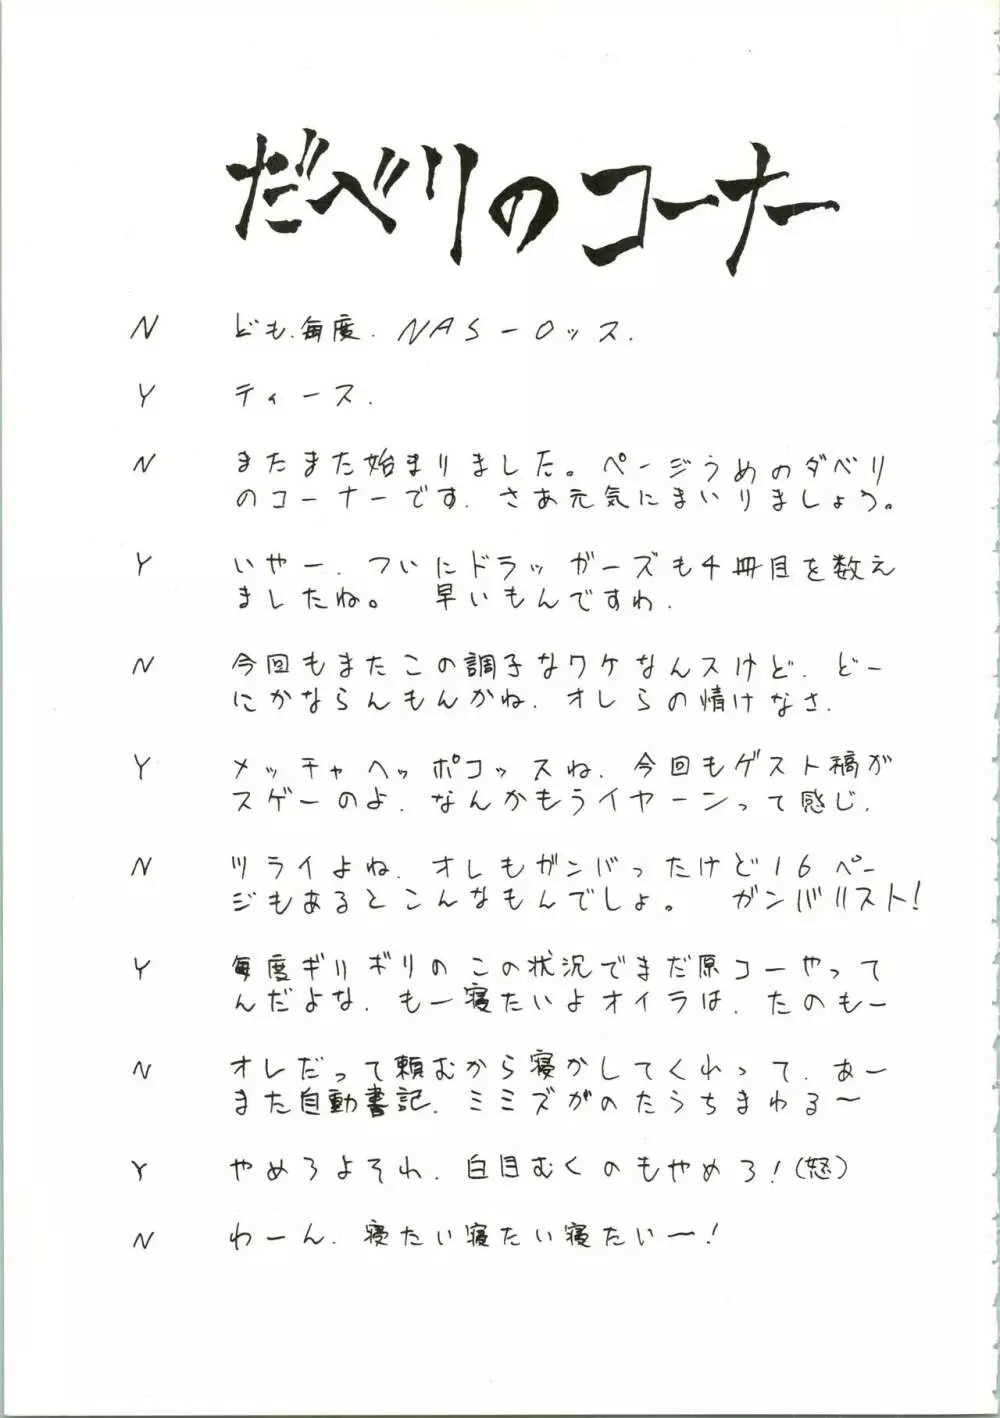 だべりのコーナー
N ども、毎度、NAS-Oッス.
Y ティース.
N またまた始まりました。ページうめのダベリ
のコーナーです. さあ元気にまいりましょう。
Y いやー. ついにドラッガーズも4冊目を数え
ましたね。 早いもんですわ.
N 今回もまたこの調子なワケなんスけど. どー
にかならんもんかね. オレらの情けなさ.
Y メッチャヘッポコッスね. 今回もゲスト稿が
スゲーのよ. なんかもうイヤーンって感じ.
N ツライよね. オレもガンバったけど16ペー
ジもあるとこんなもんでしょ。 ガンバリスト!
Y 毎度ギリギリのこの状況でまだ原コーやって
んだよな. もー寝たいよオイラは. たのもー
N オレだって頼むから寝かしてくれって. あー
また自動書記. ミミズがのたうちまわる〜
Y やめろよそれ. 白目むくのもやめろ!(怒)
N わーん. 寝たい寝たい寝たい〜!